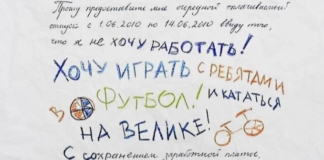 Прошу предоставить мне очередной оплачиваемый
отпуск с 1.06.2010 по 14.06.2010 ввиду того,
что я не хочу работать!
Хочу играть с ребятами
в футбол! и кататься
на велике!
С сохранением заработной платы,